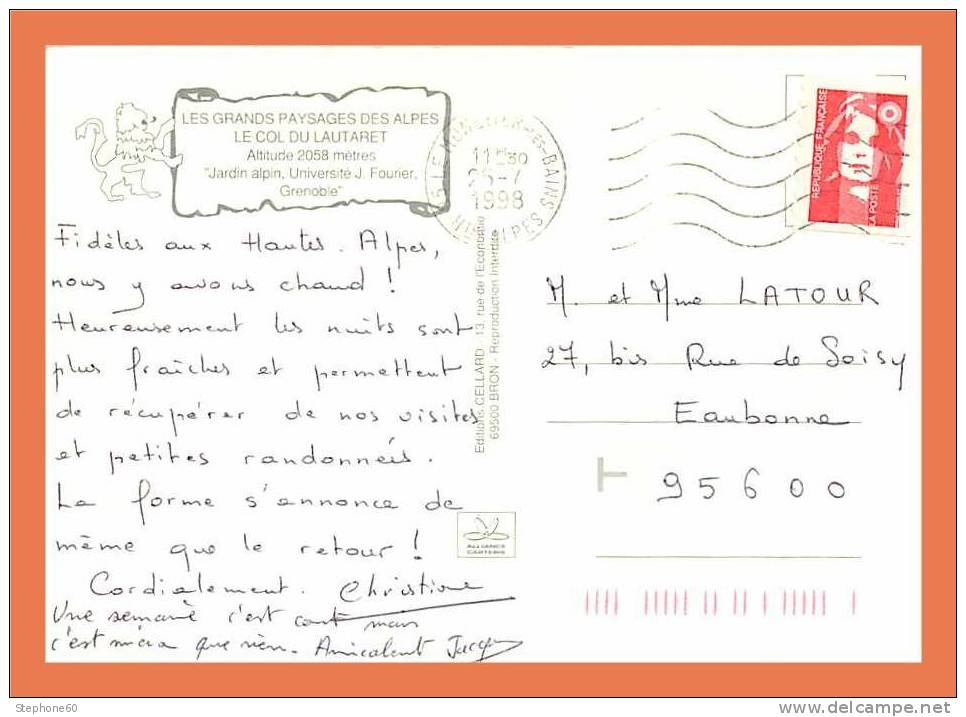 LES GRANDS PAYSAGES DES ALPES
LE COL DU LAUTARET
Altitude 2058 mètres
"Jardin alpin, Université J. Fourier,
Grenoble"
05 LE MONETIER-LES-BAINS
11H30
25-7
1998
HTES ALPES
RÉPUBLIQUE FRANÇAISE
LA POSTE
Fidèles aux Hautes. Alpes,
nous y avons chaud !
Heureusement les nuits sont
plus fraîches et permettent
de récupérer de nos visites
et petites randonnées.
La forme s'annonce de
même que le retour !
Cordialement. Christine
Une semaine c'est court mais
c'est mieux que rien. Amicalement Jacques
Editions CELLARD - 13, rue de l'Economie
69500 BRON - Reproduction Interdite
ALLIANCE
CARTERIE
M. et Mme LATOUR
27, bis Rue de Soisy
Eaubonne
95600
Stephone60
www.delcampe.net